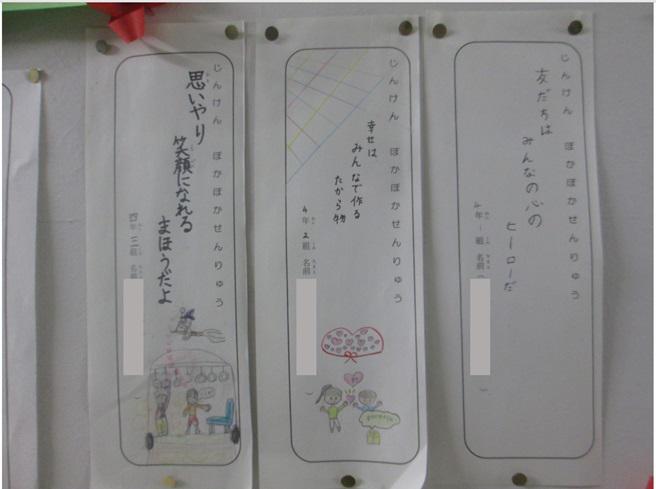 じんけん ぽかぽかせんりゅう
友だちは
みんなの心の
ヒーローだ
4年1組 名前
じんけん ぽかぽかせんりゅう
幸せは
みんなで作る
たから物
4年2組 名前
じんけん ぽかぽかせんりゅう
思いやり
笑顔になれる
まほうだよ
四年三組 名前